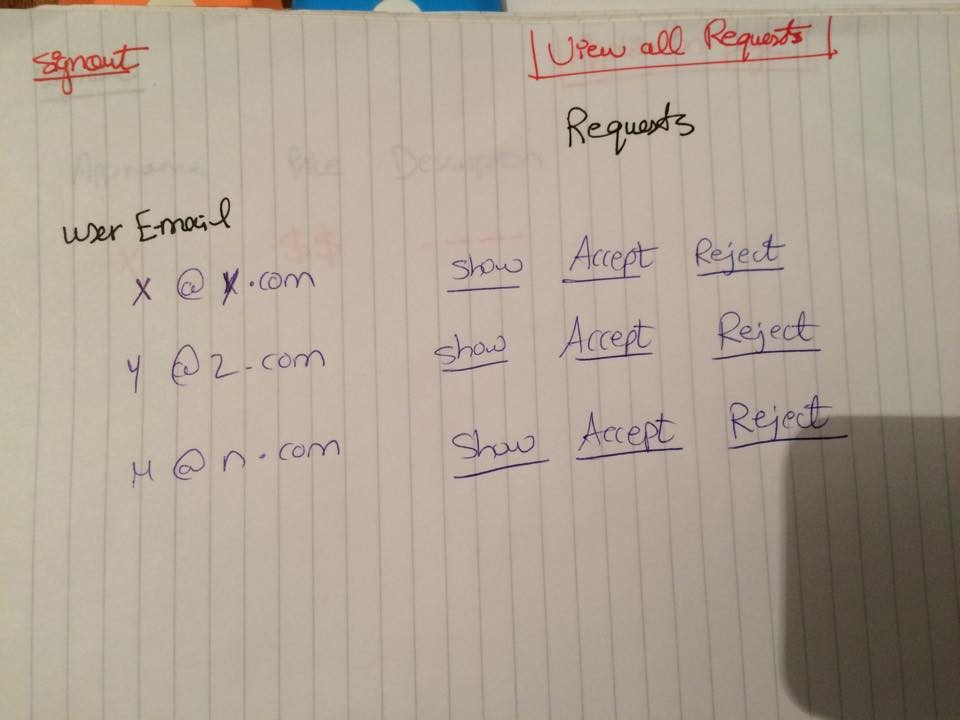 Signout
View all Requests
Requests
Appname Price Description
user E-mail
$$
X @ X.com Show Accept Reject
Y @ Z.com Show Accept Reject
M @ n.com Show Accept Reject